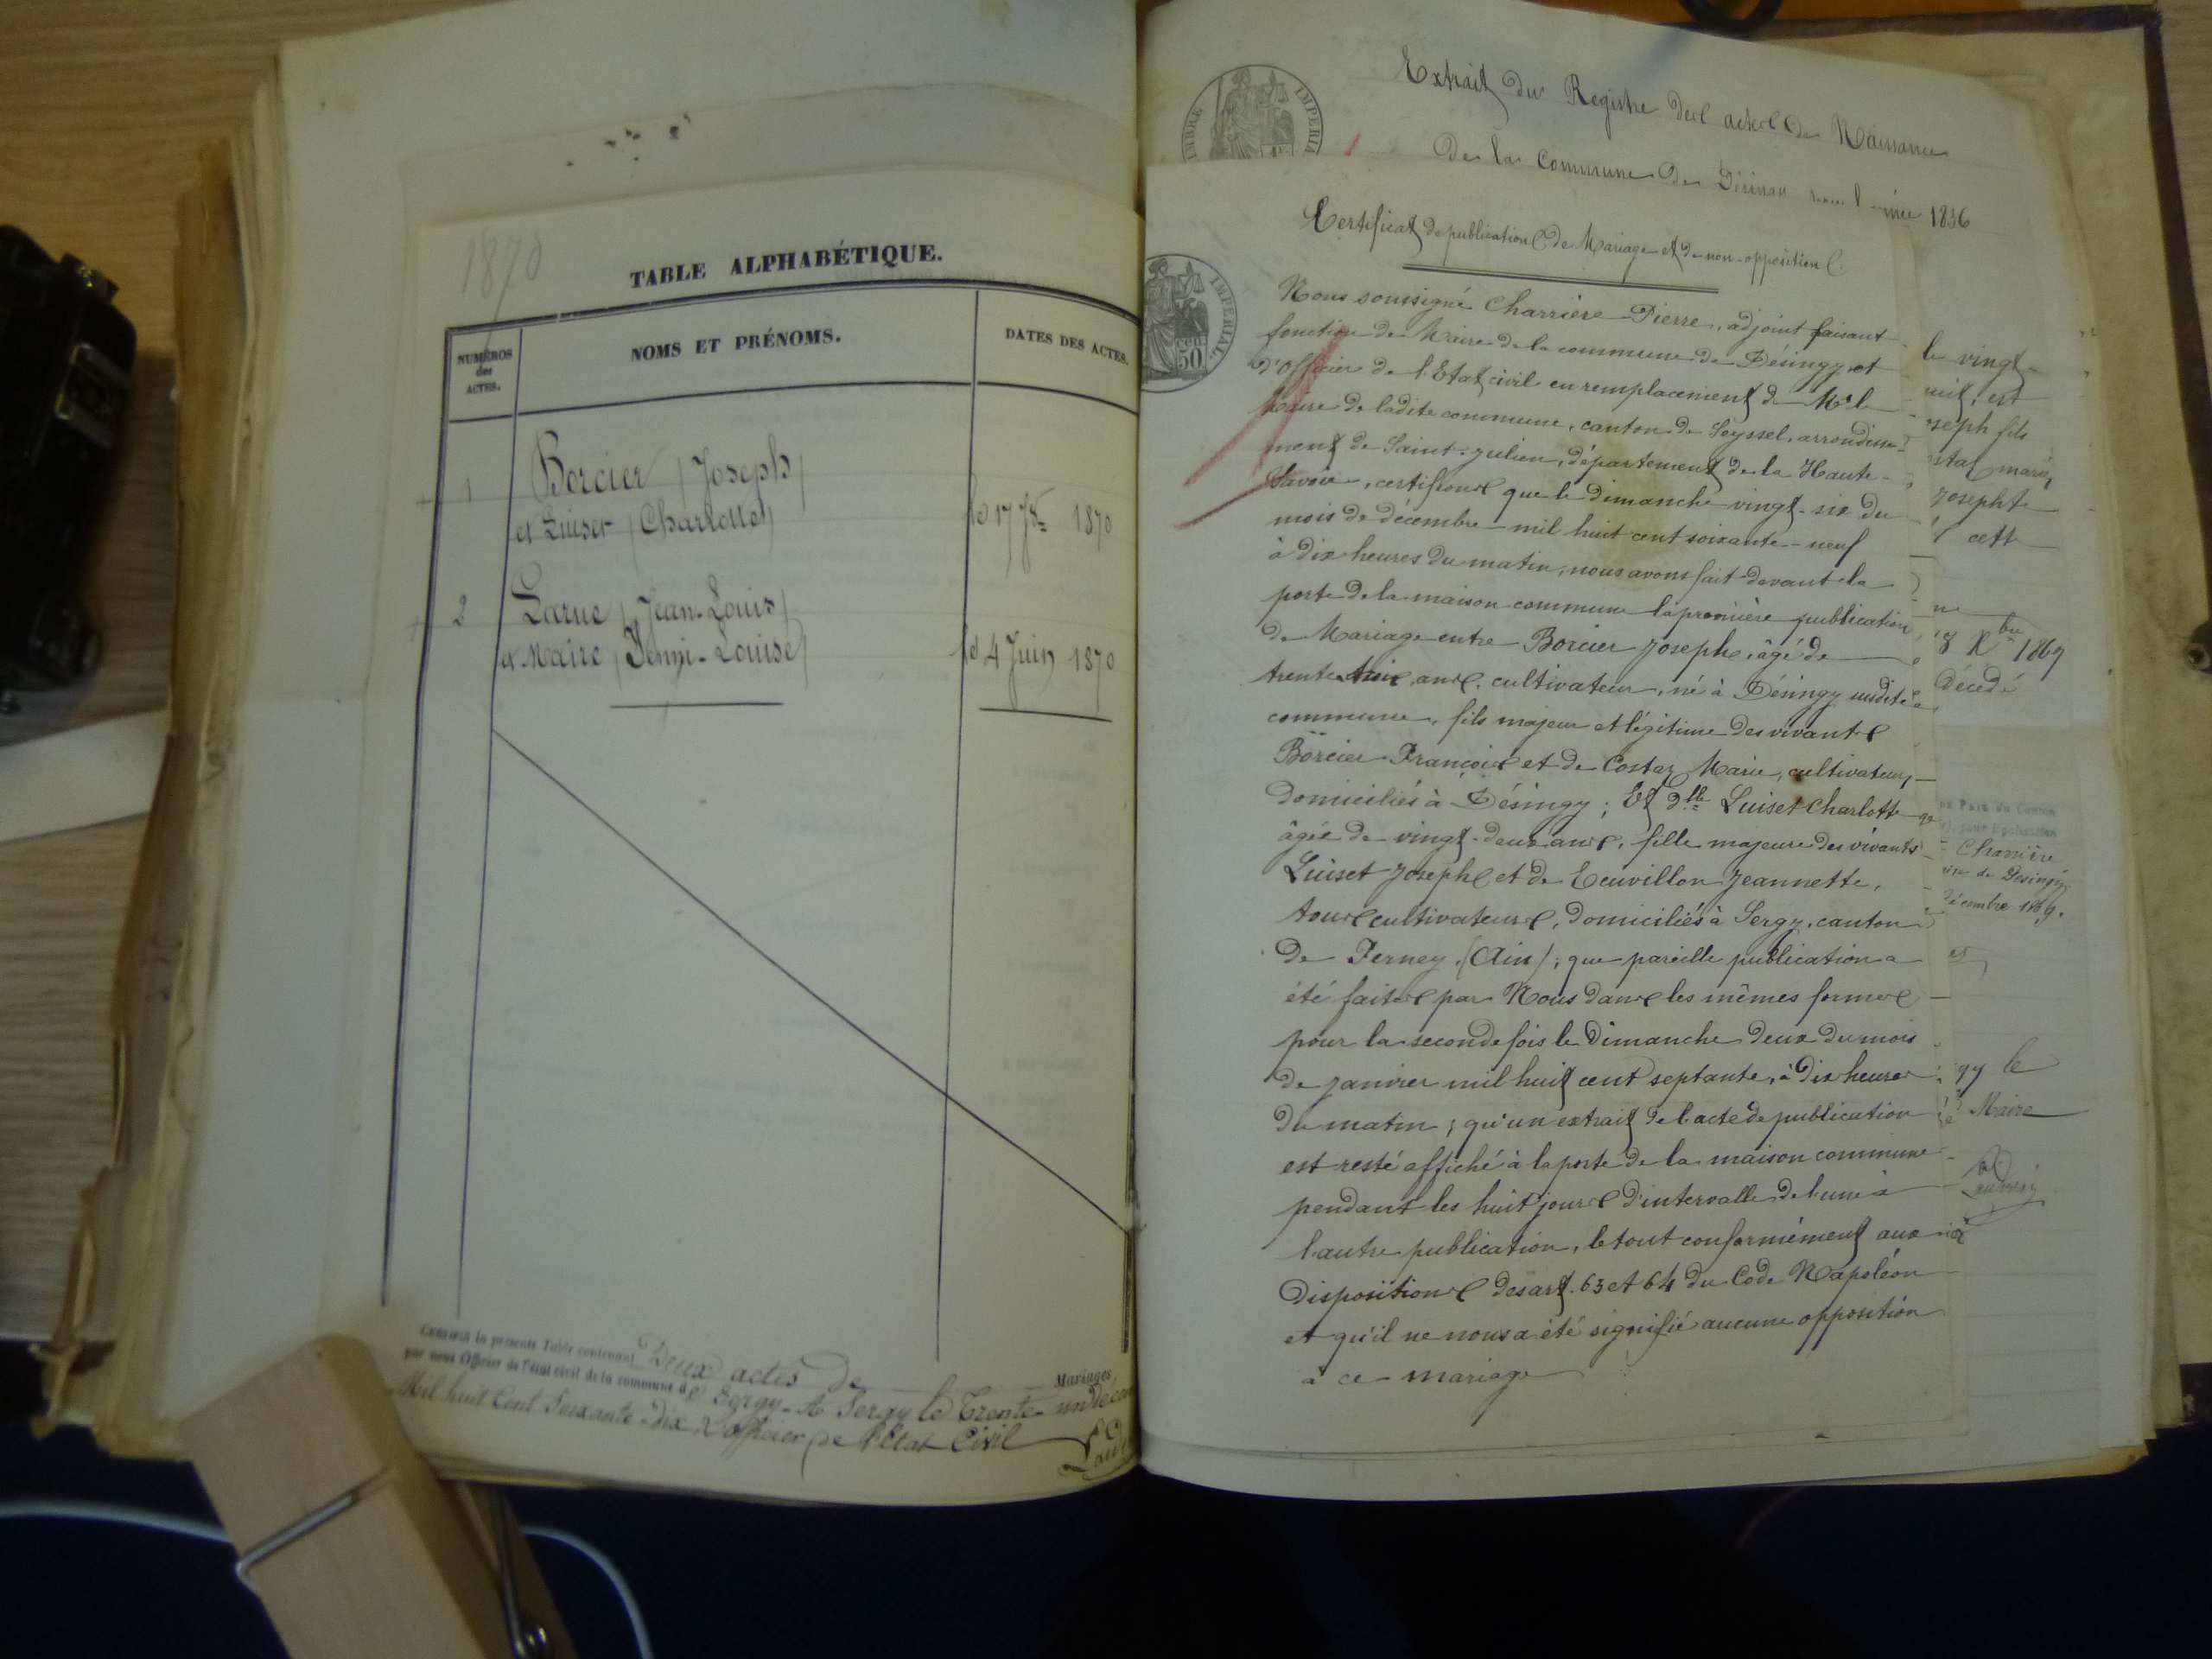 1870
TABLE ALPHABÉTIQUE.
NUMÉROS
des
ACTES.
NOMS ET PRÉNOMS.
DATES DES ACTES.
1
Borcier (Joseph)
et Luiset (Charlotte)
le 17 1870
2
Larue (Jean-Louis)
et Maire Jenny-Louise
le 4 Juin 1870
Certifié la présente Table contenant Deux actes de Mariages
par nous Officier de l'état civil de la commune de Sergy - A Sergy le Trente-un
Mil huit Cent Soixante-dix L'officier de l'Etat Civil
TIMBRE IMPERIAL
Extrait du Registre des actes de Naissance
de la Commune de 1836
Certificat de publications de Mariage et de non-opposition.
TIMBRE IMPERIAL
50 CEN
Nous soussigné Charrière Pierre, adjoint faisant
fonction de Maire de la commune de Désingy et
d'Officier de l'Etat civil en remplacement de Mr le
Maire de ladite commune, canton de Seyssel, arrondisse-
ment de Saint-Julien, département de la Haute-
Savoie, certifions que le dimanche vingt-six du
mois de décembre mil huit cent soixante-neuf
à dix heures du matin, nous avons fait devant la
porte de la maison commune la première publication
de Mariage entre Borcier Joseph, âgé de
trente-trois ans, cultivateur, né à Désingy susdite
commune, fils majeur et légitime des vivants
Borcier François et de Costaz Marie, cultivateurs,
domiciliés à Désingy; Et dlle Luiset Charlotte
âgée de vingt-deux ans, fille majeure des vivants
Luiset Joseph et de Ecuvillon Jeannette,
tous cultivateurs, domiciliés à Sergy, canton
de Ferney, (Ain); que pareille publication a
été faites par Nous dans les mêmes formes
pour la seconde fois le Dimanche deux du mois
de janvier mil huit cent septante, à dix heures
du matin; qu'un extrait de l'acte de publication
est resté affiché à la porte de la maison commune
pendant les huit jours d'intervalle de l'une à
l'autre publication, le tout conformément aux
dispositions des art. 63 et 64 du Code Napoléon
et qu'il ne nous a été signifié aucune opposition
à ce mariage
le vingt-
est
fils
Joseph
1869
décédé
Charrière
de Desingy,
1869.
et
gy le
Maire